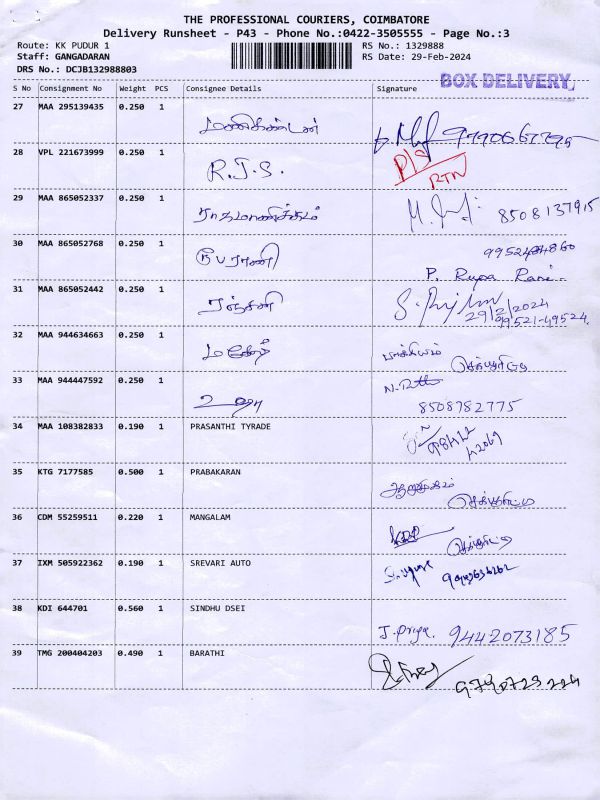 THE PROFESSIONAL COURIERS, COIMBATORE
Delivery Runsheet - P43 - Phone No.:0422-3505555 - Page No.:3
Route: KK PUDUR 1 RS No.: 1329888
Staff: GANGADARAN RS Date: 29-Feb-2024
DRS No.: DCJB132988803
BOX DELIVERY
S No Consignment No Weight PCS Consignee Details Signature
27 MAA 295139435 0.250 1 மணிகண்டன்
28 VPL 221673999 0.250 1 R.J.S. RTN
29 MAA 865052337 0.250 1 ராதமாணிக்கம் 8508137915
30 MAA 865052768 0.250 1 ரூபராணி
P. Rupa Rani.
31 MAA 865052442 0.250 1 ரஞ்சனி
29/2/2024
99521-49524
32 MAA 944634663 0.250 1 மகேஷ் பாக்கியம்
33 MAA 944447592 0.250 1 உஷா
8508782775
34 MAA 108382833 0.190 1 PRASANTHI TYRADE
35 KTG 7177585 0.500 1 PRABAKARAN ஆறுமுகம்
36 CDM 55259511 0.220 1 MANGALAM
37 IXM 505922362 0.190 1 SREVARI AUTO
38 KDI 644701 0.560 1 SINDHU DSEI
J. Priya. 9442073185
39 TMG 200404203 0.490 1 BARATHI